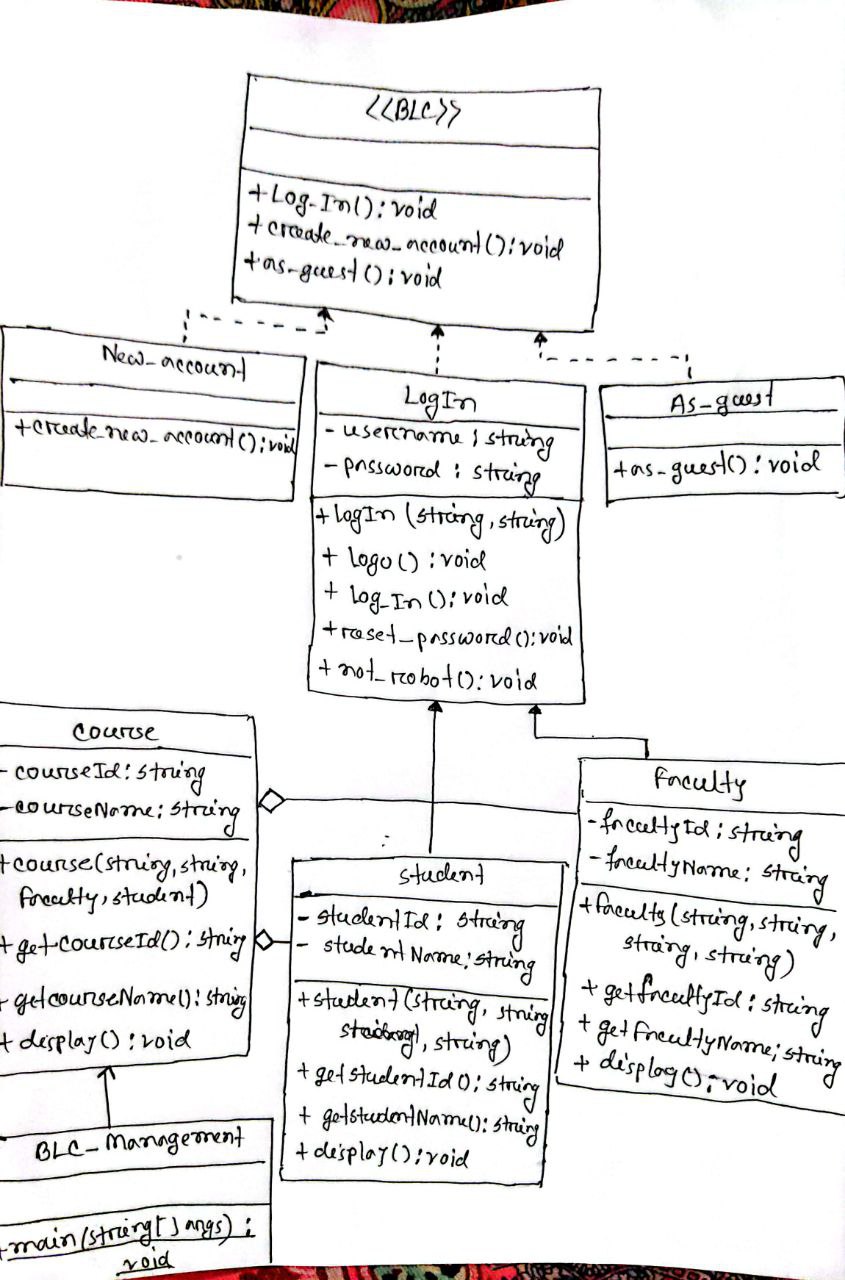 <<BLC>>
+Log_In(): void
+create_new_account(): void
+as_guest(): void
New_account
+create_new_account(): void
LogIn
- username : string
- password : string
+logIn (string, string)
+ logo() : void
+ log_In(): void
+reset_password(): void
+ not_robot(): void
As_guest
+as_guest(): void
course
- courseId: string
- courseName: string
+course(string, string,
faculty, student)
+ getcourseId(): string
+ getcourseName(): string
+ display() : void
Faculty
-facultyId : string
-facultyName: string
+faculty(string, string,
string, string)
+ getfacultyId : string
+ getfacultyName: string
+ display(): void
student
- studentId: string
- studentName: string
+student(string, string
, string)
+ getstudentId(): string
+ getstudentName(): string
+display(): void
BLC_Management
+main(string[] args) :
void